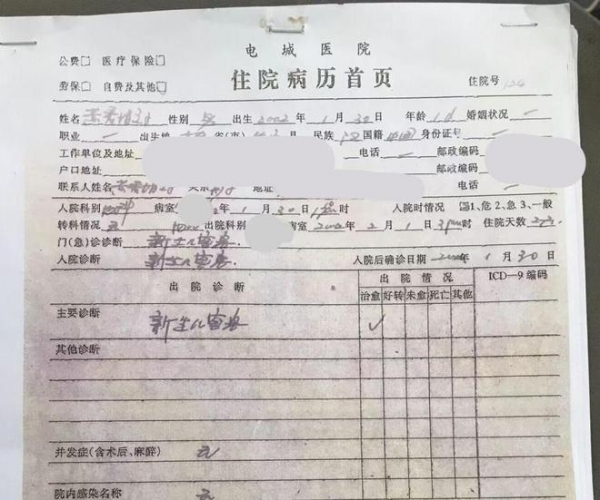 电城医院
公费□ 医疗保险□
住院病历首页
劳保□ 自费及其他□ 住院号
姓名 性别 出生 2002年1月30日 年龄1d 婚姻状况 一
职业 一 出生地 省(市) 县 民族 汉 国籍 中国 身份证号 一
工作单位及地址 电话 一 邮政编码
户口地址 邮政编码
联系人姓名 关系 地址 电话 一
入院科别 病室 2年1月30日 时 入院时情况 1、危2、急3、一般
转科情况 无 出院科别 病室 2002年2月1日3pm时 住院天数
门(急)诊诊断 新生儿窒息.
入院诊断 新生儿窒息. 入院后确诊日期 2002年1月30日
出院诊断 出院情况 ICD—9编码
治愈 好转 未愈 死亡 其他
主要诊断 新生儿窒息 ✓
其他诊断
并发症(含术后、麻醉) 无
院内感染名称 无